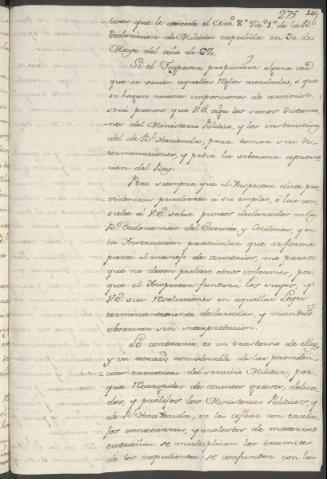 275
tivas que le concede el Art.º 8.º Tit.º 1.º de la R.l
declaracion de Milicias expedida en 30. de
Mayo del año de 67.
Si el Inspector propusiere alguna vez
que se varien aquellas Reglas acordadas, ó que
se hagan nuevas imposiciones de arvitrios,
será preciso que VE. oiga los sanos dictame-
nes del Ministerio Politico, y las instrucciones
del de R.l Hacienda, para tomar sus de-
terminaciones, y pedir la soberana aprova-
cion del Rey.
Pero siempre que el Inspector dicte pro-
videncias peculiares á su empleo, ó las con-
sulte á VE. sobre puntos declarados en las
R.s Ordenanzas del Exercito, y Milicias, y en
la Instruccion particular que se forme
para el manejo de arvitrios, me parece
que no deven pedirse otros informes, por-
que el Inspector fundará los suyos, y
VE. sus resoluciones en aquellas Leyes
terminantemente declaradas, y mandadas
observar sin interpretacion.
Lo contrario, es un trastorno de ellas,
y un atraso considerable de las providen-
cias executivas del servicio Militar, por-
que recargados de asuntos graves, delica-
dos, y prolijos los Ministerios Politicos, y
de R.l Hacienda, se les aflixe con
y molestos de materias
estrañas se multiplican los tramites
de los expedientes se confunden con las